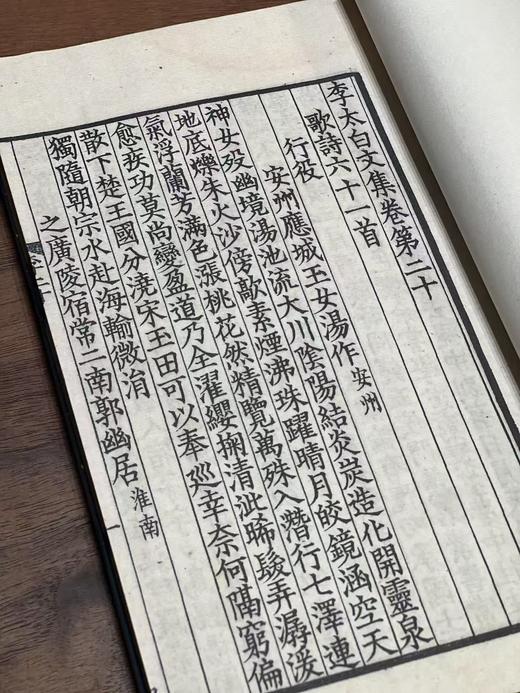 李太白文集卷第二十
歌詩六十一首
行役
安州應城玉女湯作 安州
神女歿幽境湯池流大川陰陽結炎炭造化開靈泉
地底爍朱火沙傍歊素煙沸珠躍晴月皎鏡涵空天
氣浮蘭芳滿色漲桃花然精覽萬殊入潛行七澤連
愈疾功莫尚變盈道乃全濯纓掬清泚晞髮弄潺湲
散下楚王國分澆宋玉田可以奉巡幸奈何隔窮偏
獨隨朝宗水赴海輸微涓
之廣陵宿常二南郭幽居 淮南
一